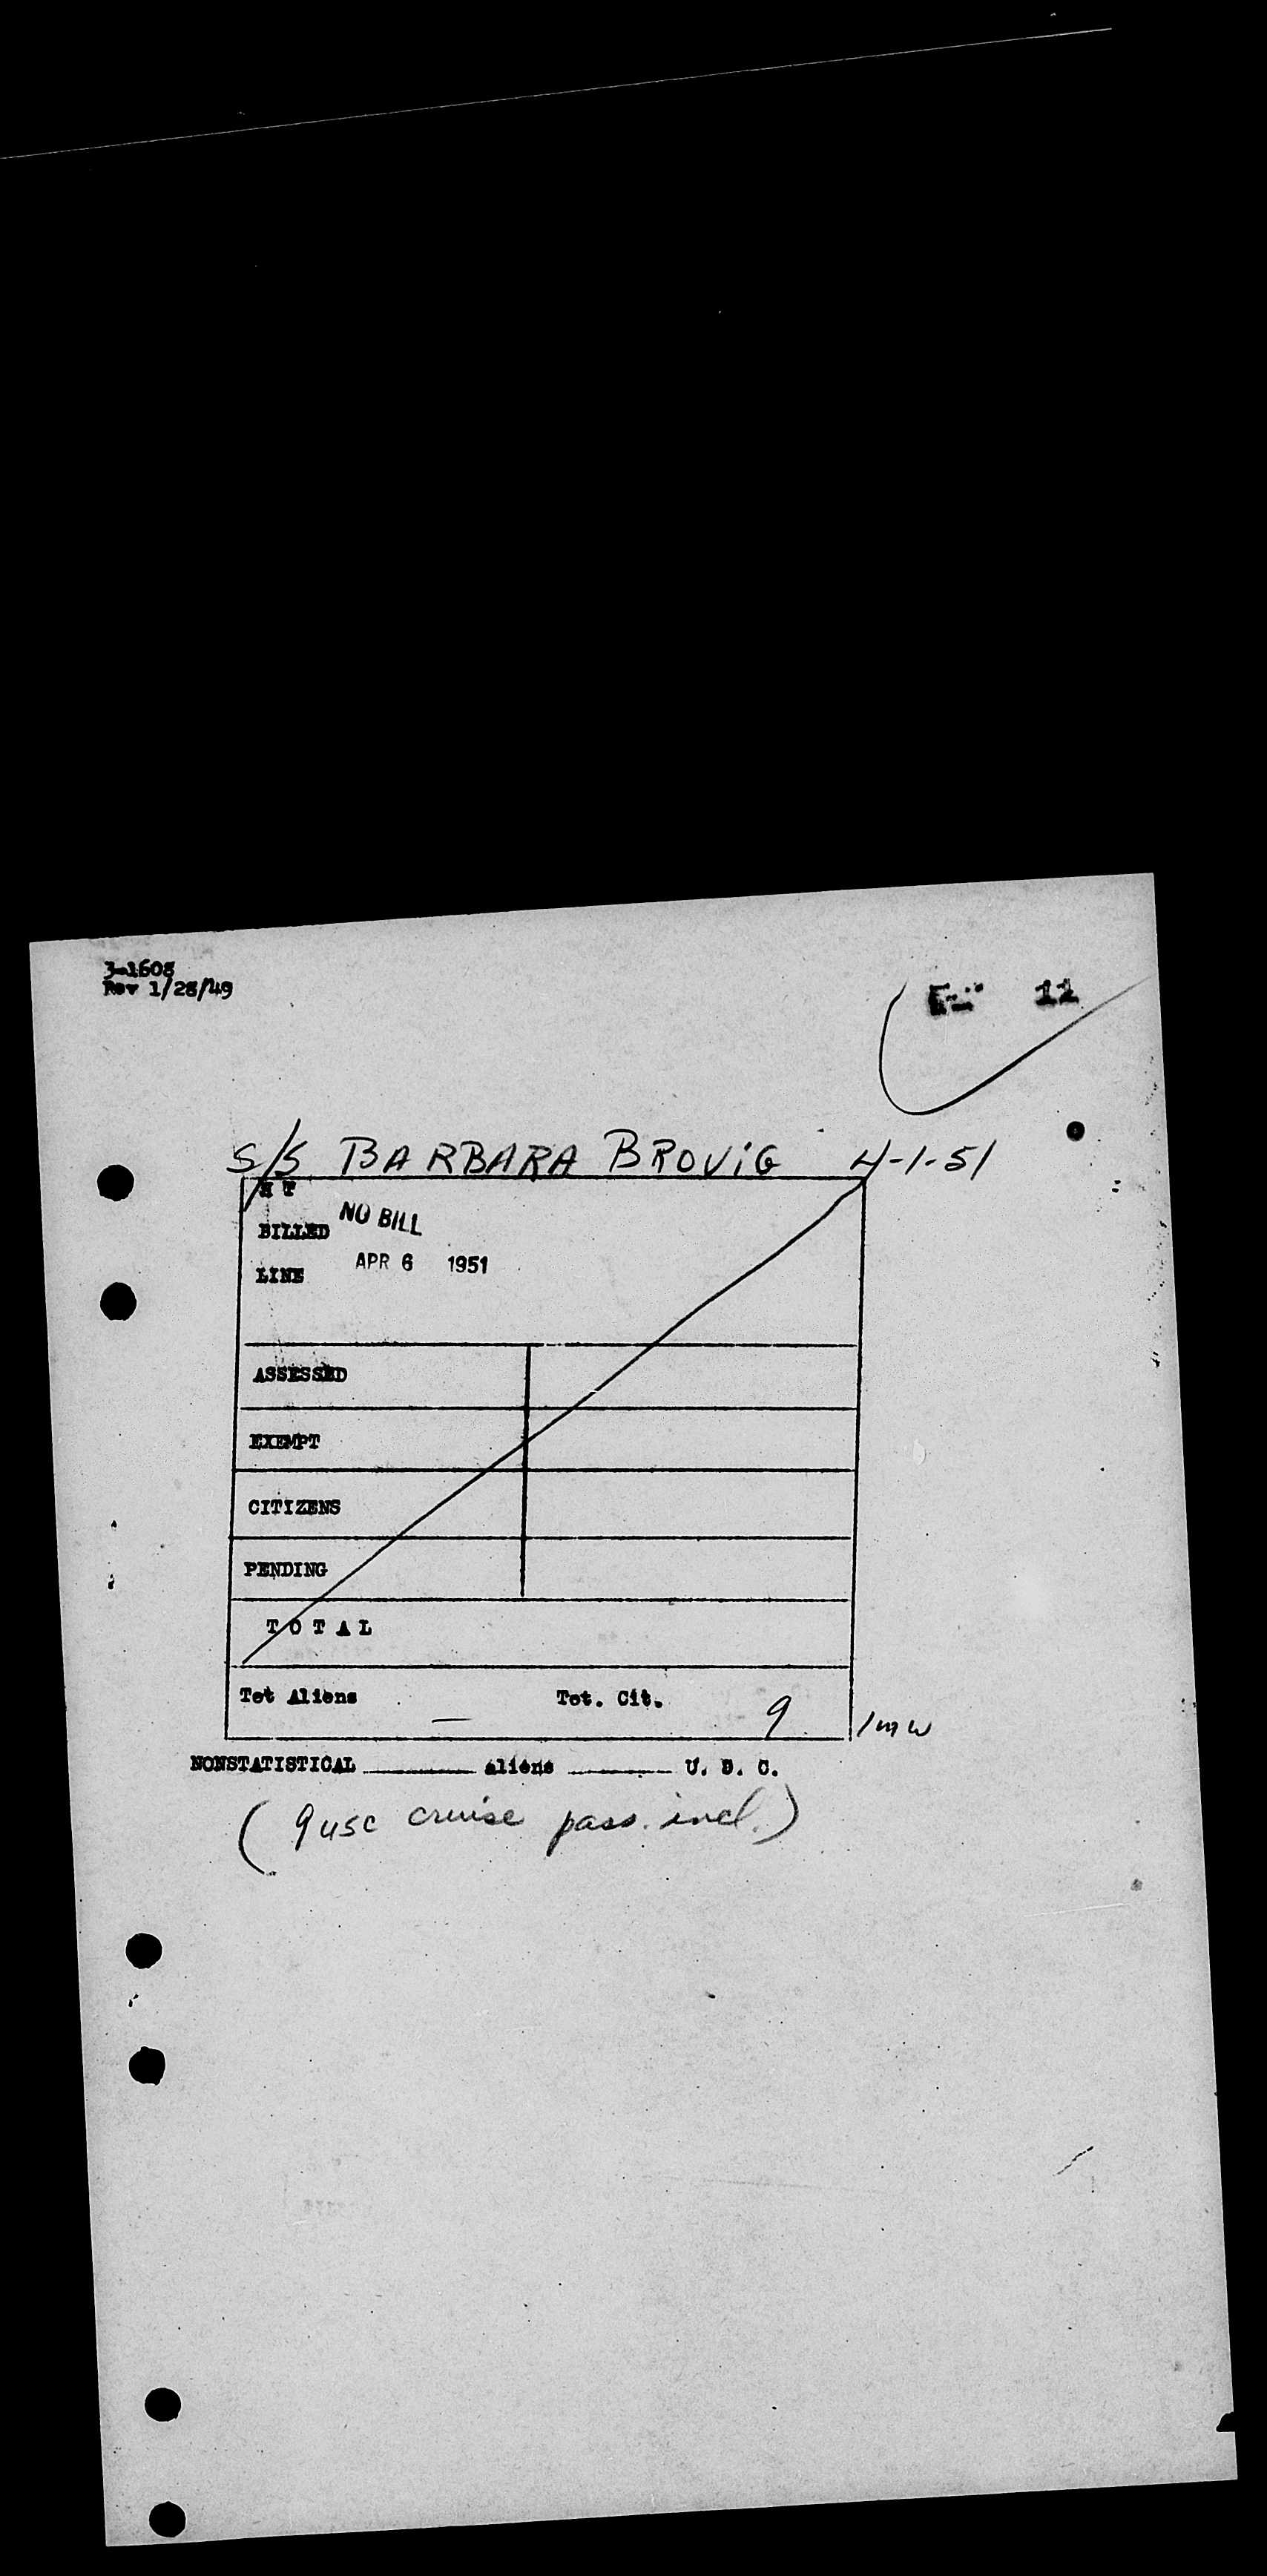 3-1608
Rev 1/28/49
11
S/S BARBARA BROVIG 4-1-51
H T
BILLED NO BILL
APR 6 1951
LINE
ASSESSED
EXEMPT
CITIZENS
PENDING
T O T A L
Tot Aliens — Tot. Cit. 9 /mw
NONSTATISTICAL ______ aliens ______ U. S. C.
( 9 usc cruise pass. incl. )